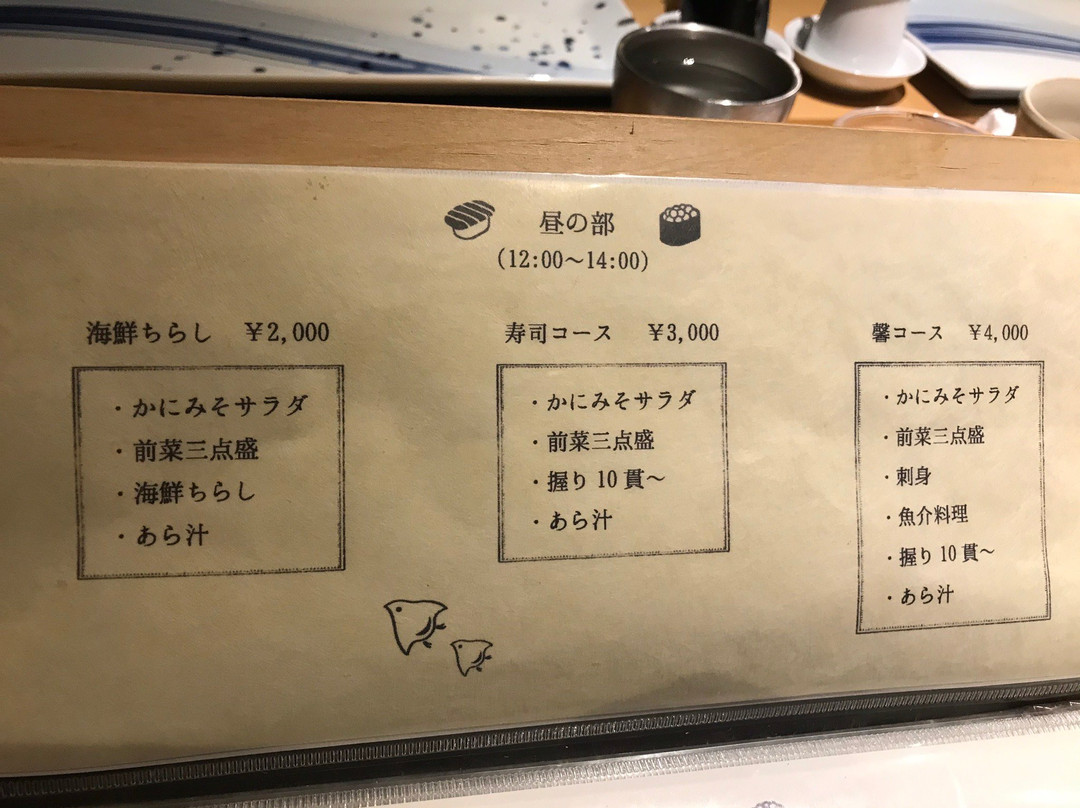 昼の部
(12:00～14:00)
海鮮ちらし ￥2,000
・かにみそサラダ
・前菜三点盛
・海鮮ちらし
・あら汁
寿司コース ￥3,000
・かにみそサラダ
・前菜三点盛
・握り10貫～
・あら汁
馨コース ￥4,000
・かにみそサラダ
・前菜三点盛
・刺身
・魚介料理
・握り10貫～
・あら汁